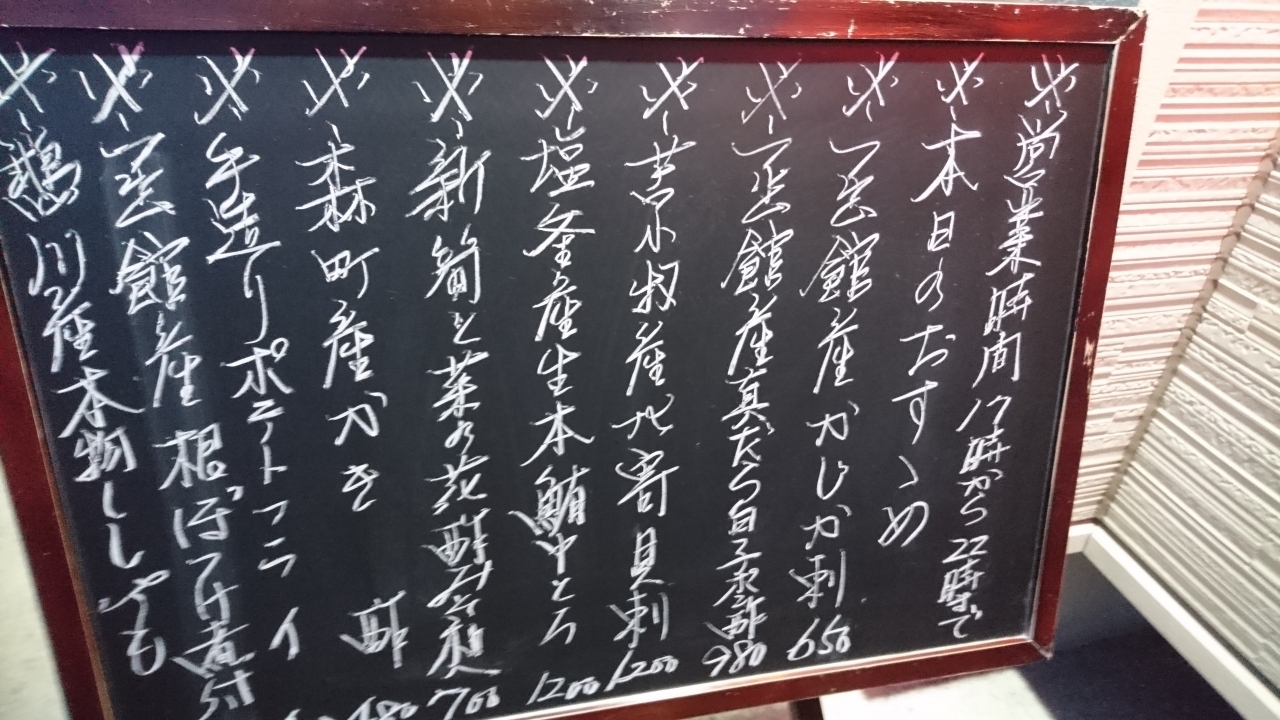 ※営業時間 17時から22時まで
※本日のおすゝめ
※函館産かじか刺 650
※函館産真だら白子ポン酢 980
※苫小牧産北寄貝刺 1200
※塩釜産生本鮪中とろ 1200
※新筍と菜の花酢みそ 700
※森町産かき酢 480
※手造りポテトフライ
※函館産根ぼっけ煮付
※鵡川産本物ししゃも